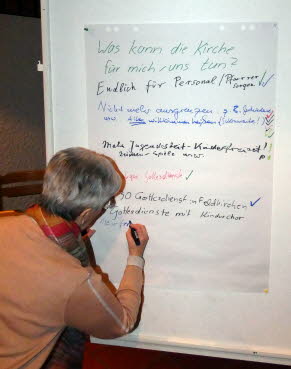 Was kann die Kirche
für mich/uns tun?
Endlich für Personal/Pfarrer
sorgen
Nicht mehr ausgrenzen z.B.
usw. willkommen heißen
Mehr Jugendarbeit - Kinderfreizeit!
zelten - Spiele usw.
Gottesdienste
30 Gottesdienst in Feldkirchen
Gottesdienste mit Kinderchor